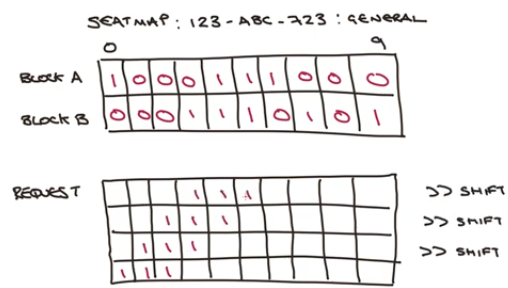 SEATMAP: 123-ABC-723: GENERAL
0 9
BLOCK A 1 0 0 0 1 1 1 0 0 0
BLOCK B 0 0 0 1 1 1 0 1 0 1
REQUEST 1 1 1 >> SHIFT
1 1 1 >> SHIFT
1 1 1 >> SHIFT
1 1 1